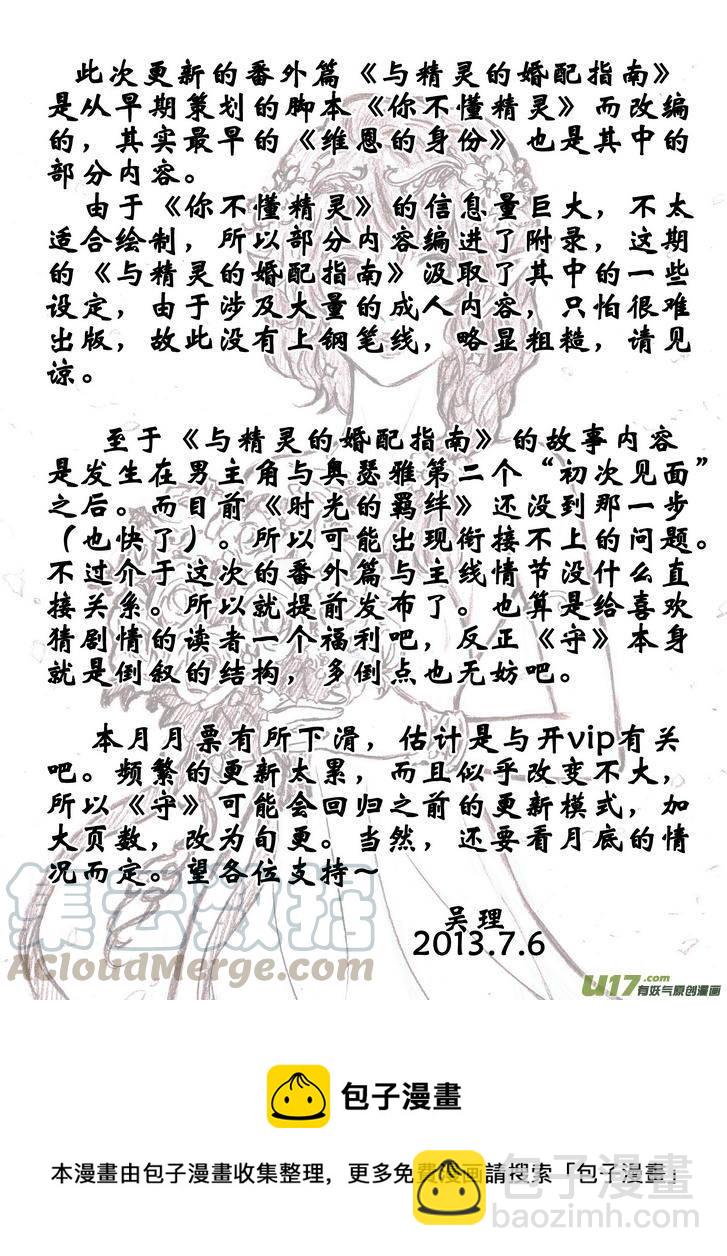 此次更新的番外篇《与精灵的婚配指南》
是从早期策划的脚本《你不懂精灵》而改编
的，其实最早的《维恩的身份》也是其中的
部分内容。
由于《你不懂精灵》的信息量巨大，不太
适合绘制，所以部分内容编进了附录，这期
的《与精灵的婚配指南》汲取了其中的一些
设定，由于涉及大量的成人内容，只怕很难
出版，故此没有上钢笔线，略显粗糙，请见
谅。
至于《与精灵的婚配指南》的故事内容
是发生在男主角与奥瑟雅第二个“初次见面”
之后。而目前《时光的羁绊》还没到那一步
（也快了）。所以可能出现衔接不上的问题。
不过介于这次的番外篇与主线情节没什么直
接关系。所以就提前发布了。也算是给喜欢
猜剧情的读者一个福利吧，反正《守》本身
就是倒叙的结构，多倒点也无妨吧。
本月月票有所下滑，估计是与开vip有关
吧。频繁的更新太累，而且似乎改变不大，
所以《守》可能会回归之前的更新模式，加
大页数，改为旬更。当然，还要看月底的情
况而定。望各位支持～
吴理
2013.7.6
集云数据
ACloudMerge.com
U17.com
有妖气原创漫画
包子漫畫
本漫畫由包子漫畫收集整理，更多免費漫画請搜索「包子漫畫」
包子漫畫
baozimh.com